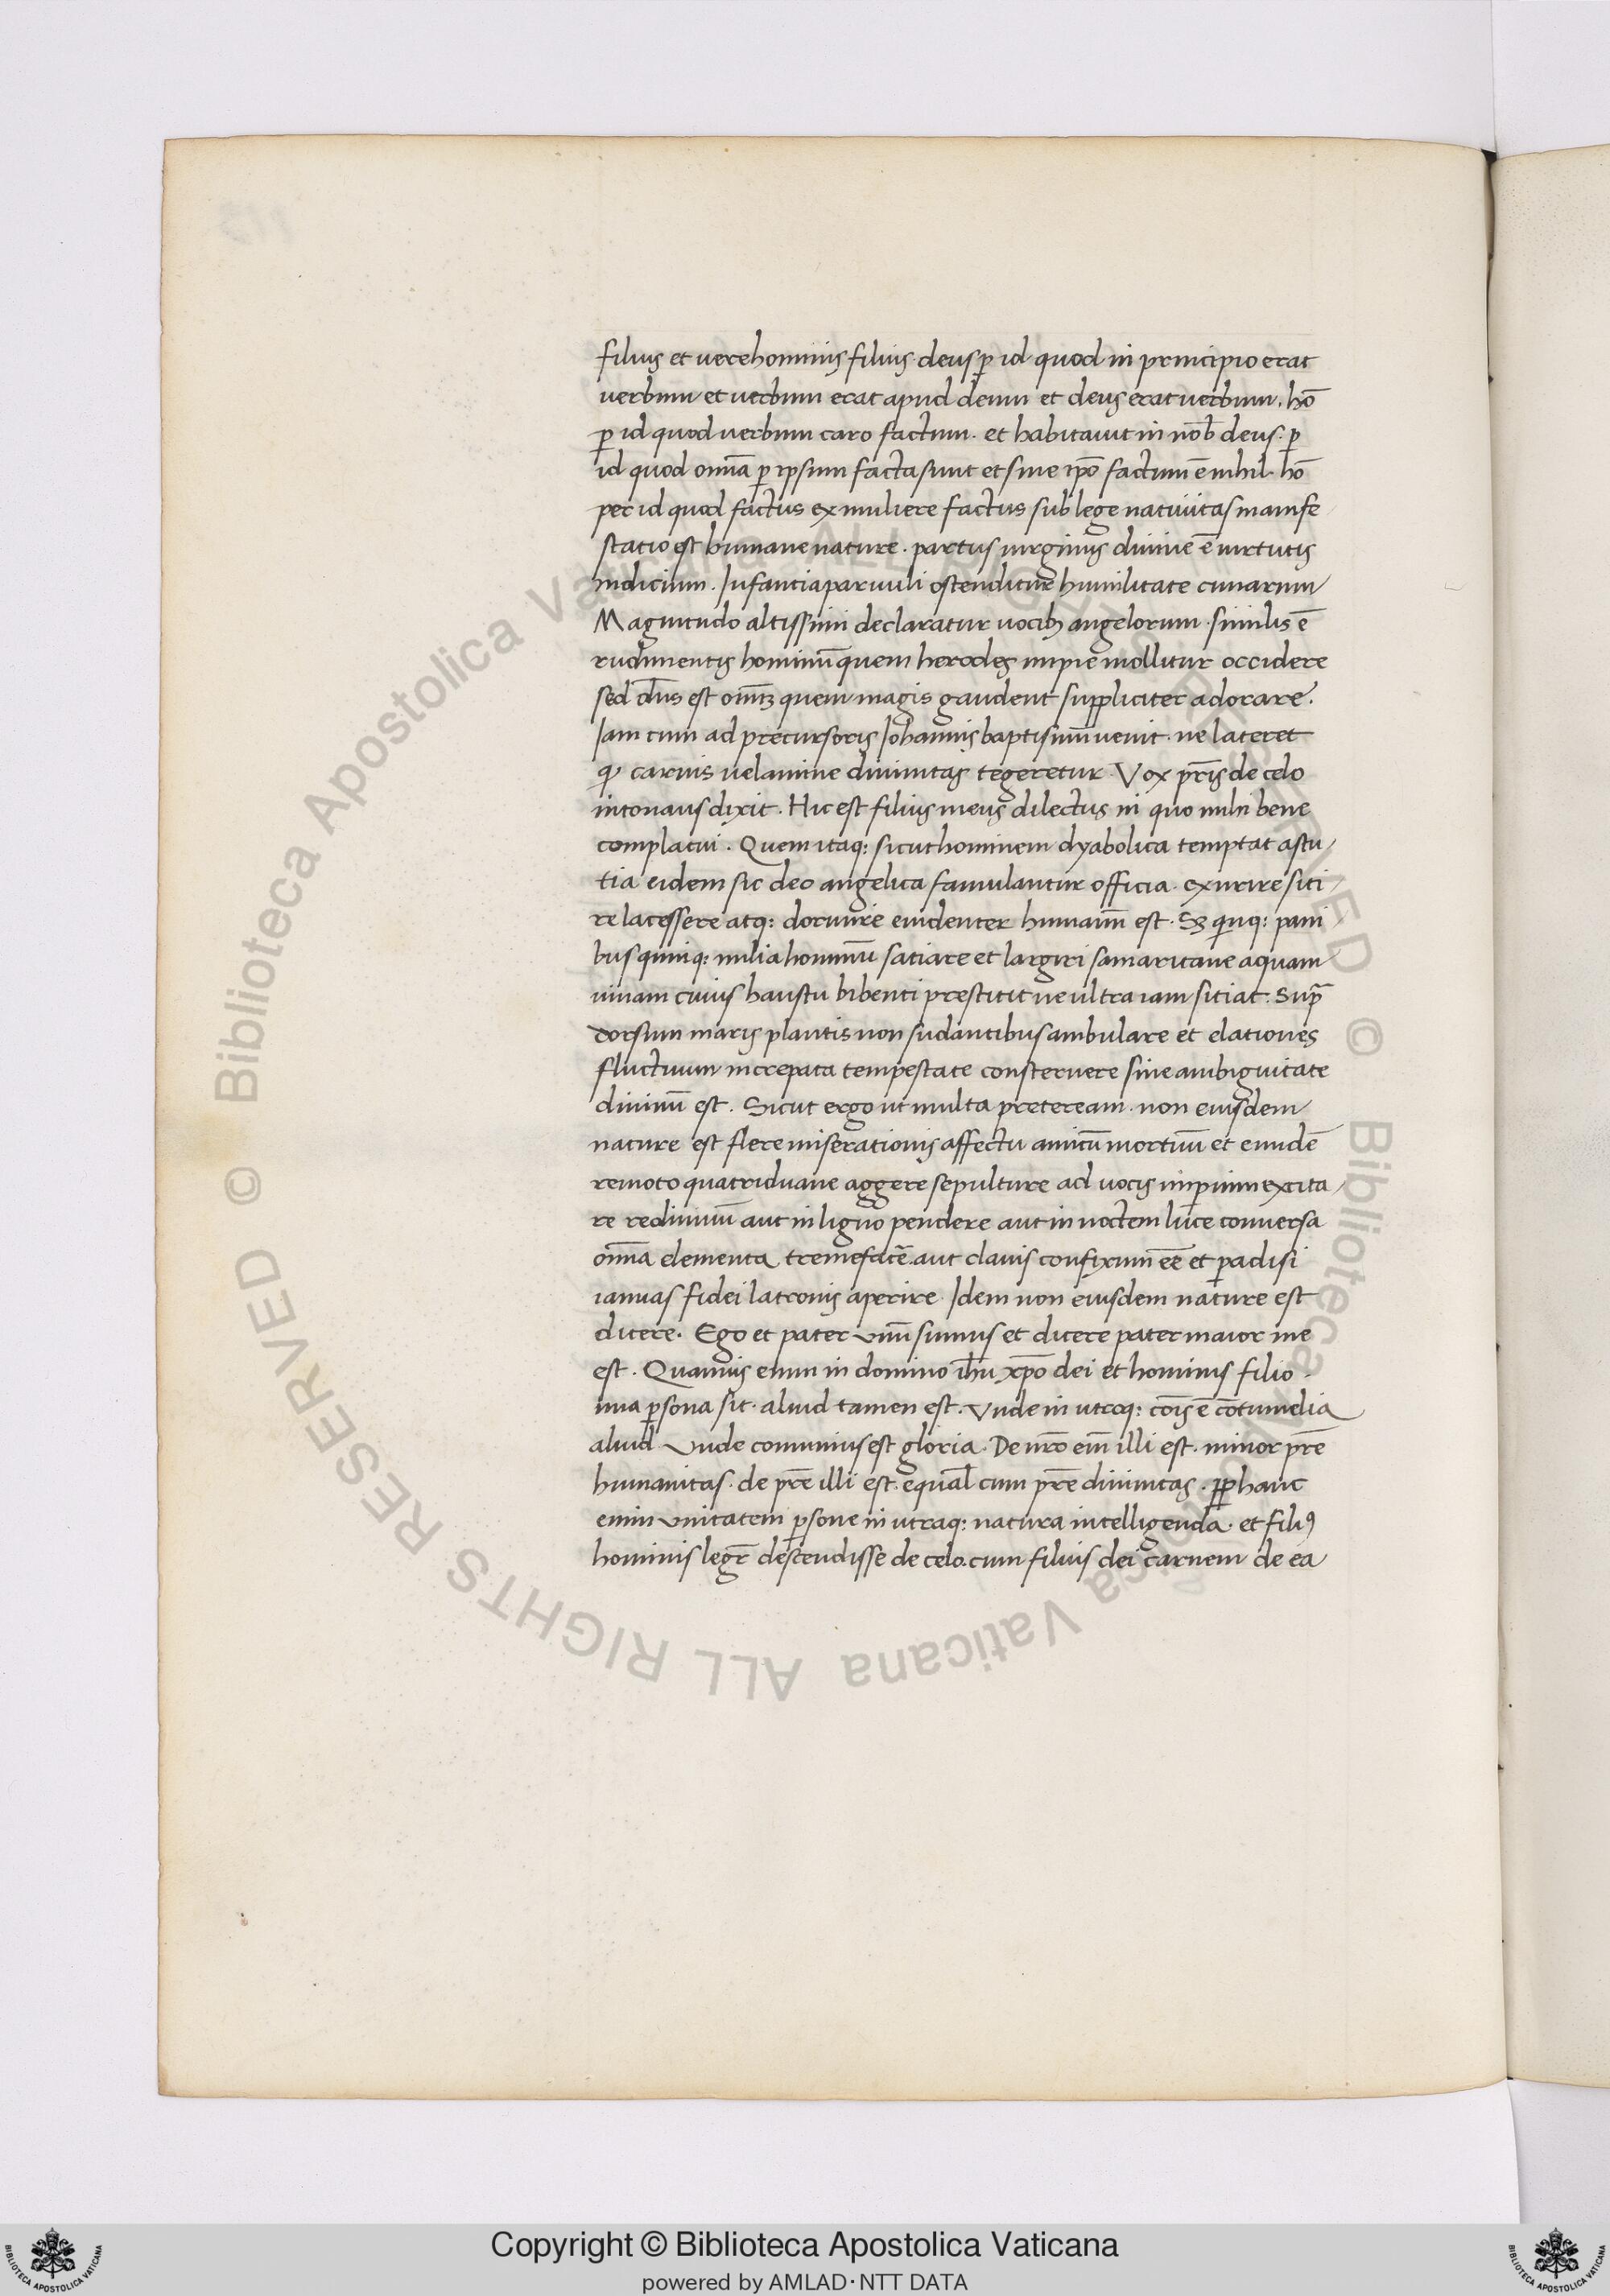 filius et vere hominis filius. deus p̄ id quod in principio erat
verbum et verbum erat apud deum et deus erat verbum. hō
p̄ id quod verbum caro factum. et habitauit in nob̄ deus. p̄
id quod om̄a p̄ ipsum facta sunt et sine ip̄o factum ē nihil. hō
per id quod factus ex muliere factus sub lege natiuitas manife
statio est humane nature. partus uirginis diuine ē uirtutis
indicium. Infantia paruuli ostenditur humilitate cunarum
Magnitudo altissimi declaratur uocibꝫ angelorum. similis ē
rudimentis hominū quem herodes impie mollitur occidere
sed dn̄s est om̄iꝫ quem magis gaudent suppliciter adorare.
Iam cum ad precursoris Johannis baptismū uenit. ne lateret
ꝙ carnis uelamine diuinitas tegeretur. Vox pr̄is de celo
intonans dixit. Hic est filius meus dilectus in quo mihi bene
complacui. Quem itaq: sicut hominem dyabolica temptat astu/
tia eidem sic deo angelica famulantur officia. exurire siti/
re lacessere atq: dormire euidenter humanū est. Sꝫ quinq: pani
bus quinq: milia hominū satiare et largiri samaritane aquam
uiuam cuius haustu bibenti prestitit ne ultra iam sitiat. Supr̄
dorsum maris plantis non sudantibus ambulare et elationes
fluctuum increpata tempestate consternere sine ambiguitate
diuinū est. Sicut ergo ut multa preteream. non eiusdem
nature est flere miserationis affectu amicū mortuū et eundē
remoto quatriduane aggere sepulture ad uocis imperium excita/
re rediuiuū aut in ligno pendere aut in noctem luce conuersa
om̄ia elementa tremefacē aut clauis confixum eē et paradisi
ianuas fidei latronis aperire. Idem non eiusdem nature est
dicere. Ego et pater vnū sumus et dicere pater maior me
est. Quamuis enim in domino ih̄u xp̄o dei et hominis filio.
una p̄sona sit. aliud tamen est. Vnde in utroq: cōis ē cōtumelia
aliud. Vnde comunius est gloria. De nr̄o em̄ illi est. minor pr̄e
humanitas. de pr̄e illi est. equal̄ cum pr̄e diuinitas. ꝓp hanc
enim vnitatem p̄sone in utraq: natura intelligenda. et filiꝰ
hominis legr̄ descendisse de celo. cum filius dei carnem de ea
Copyright © Biblioteca Apostolica Vaticana
powered by AMLAD·NTT DATA
© Biblioteca Apostolica Vaticana ALL RIGHTS RESERVED © Biblioteca Apostolica Vaticana ALL RIGHTS RESERVED